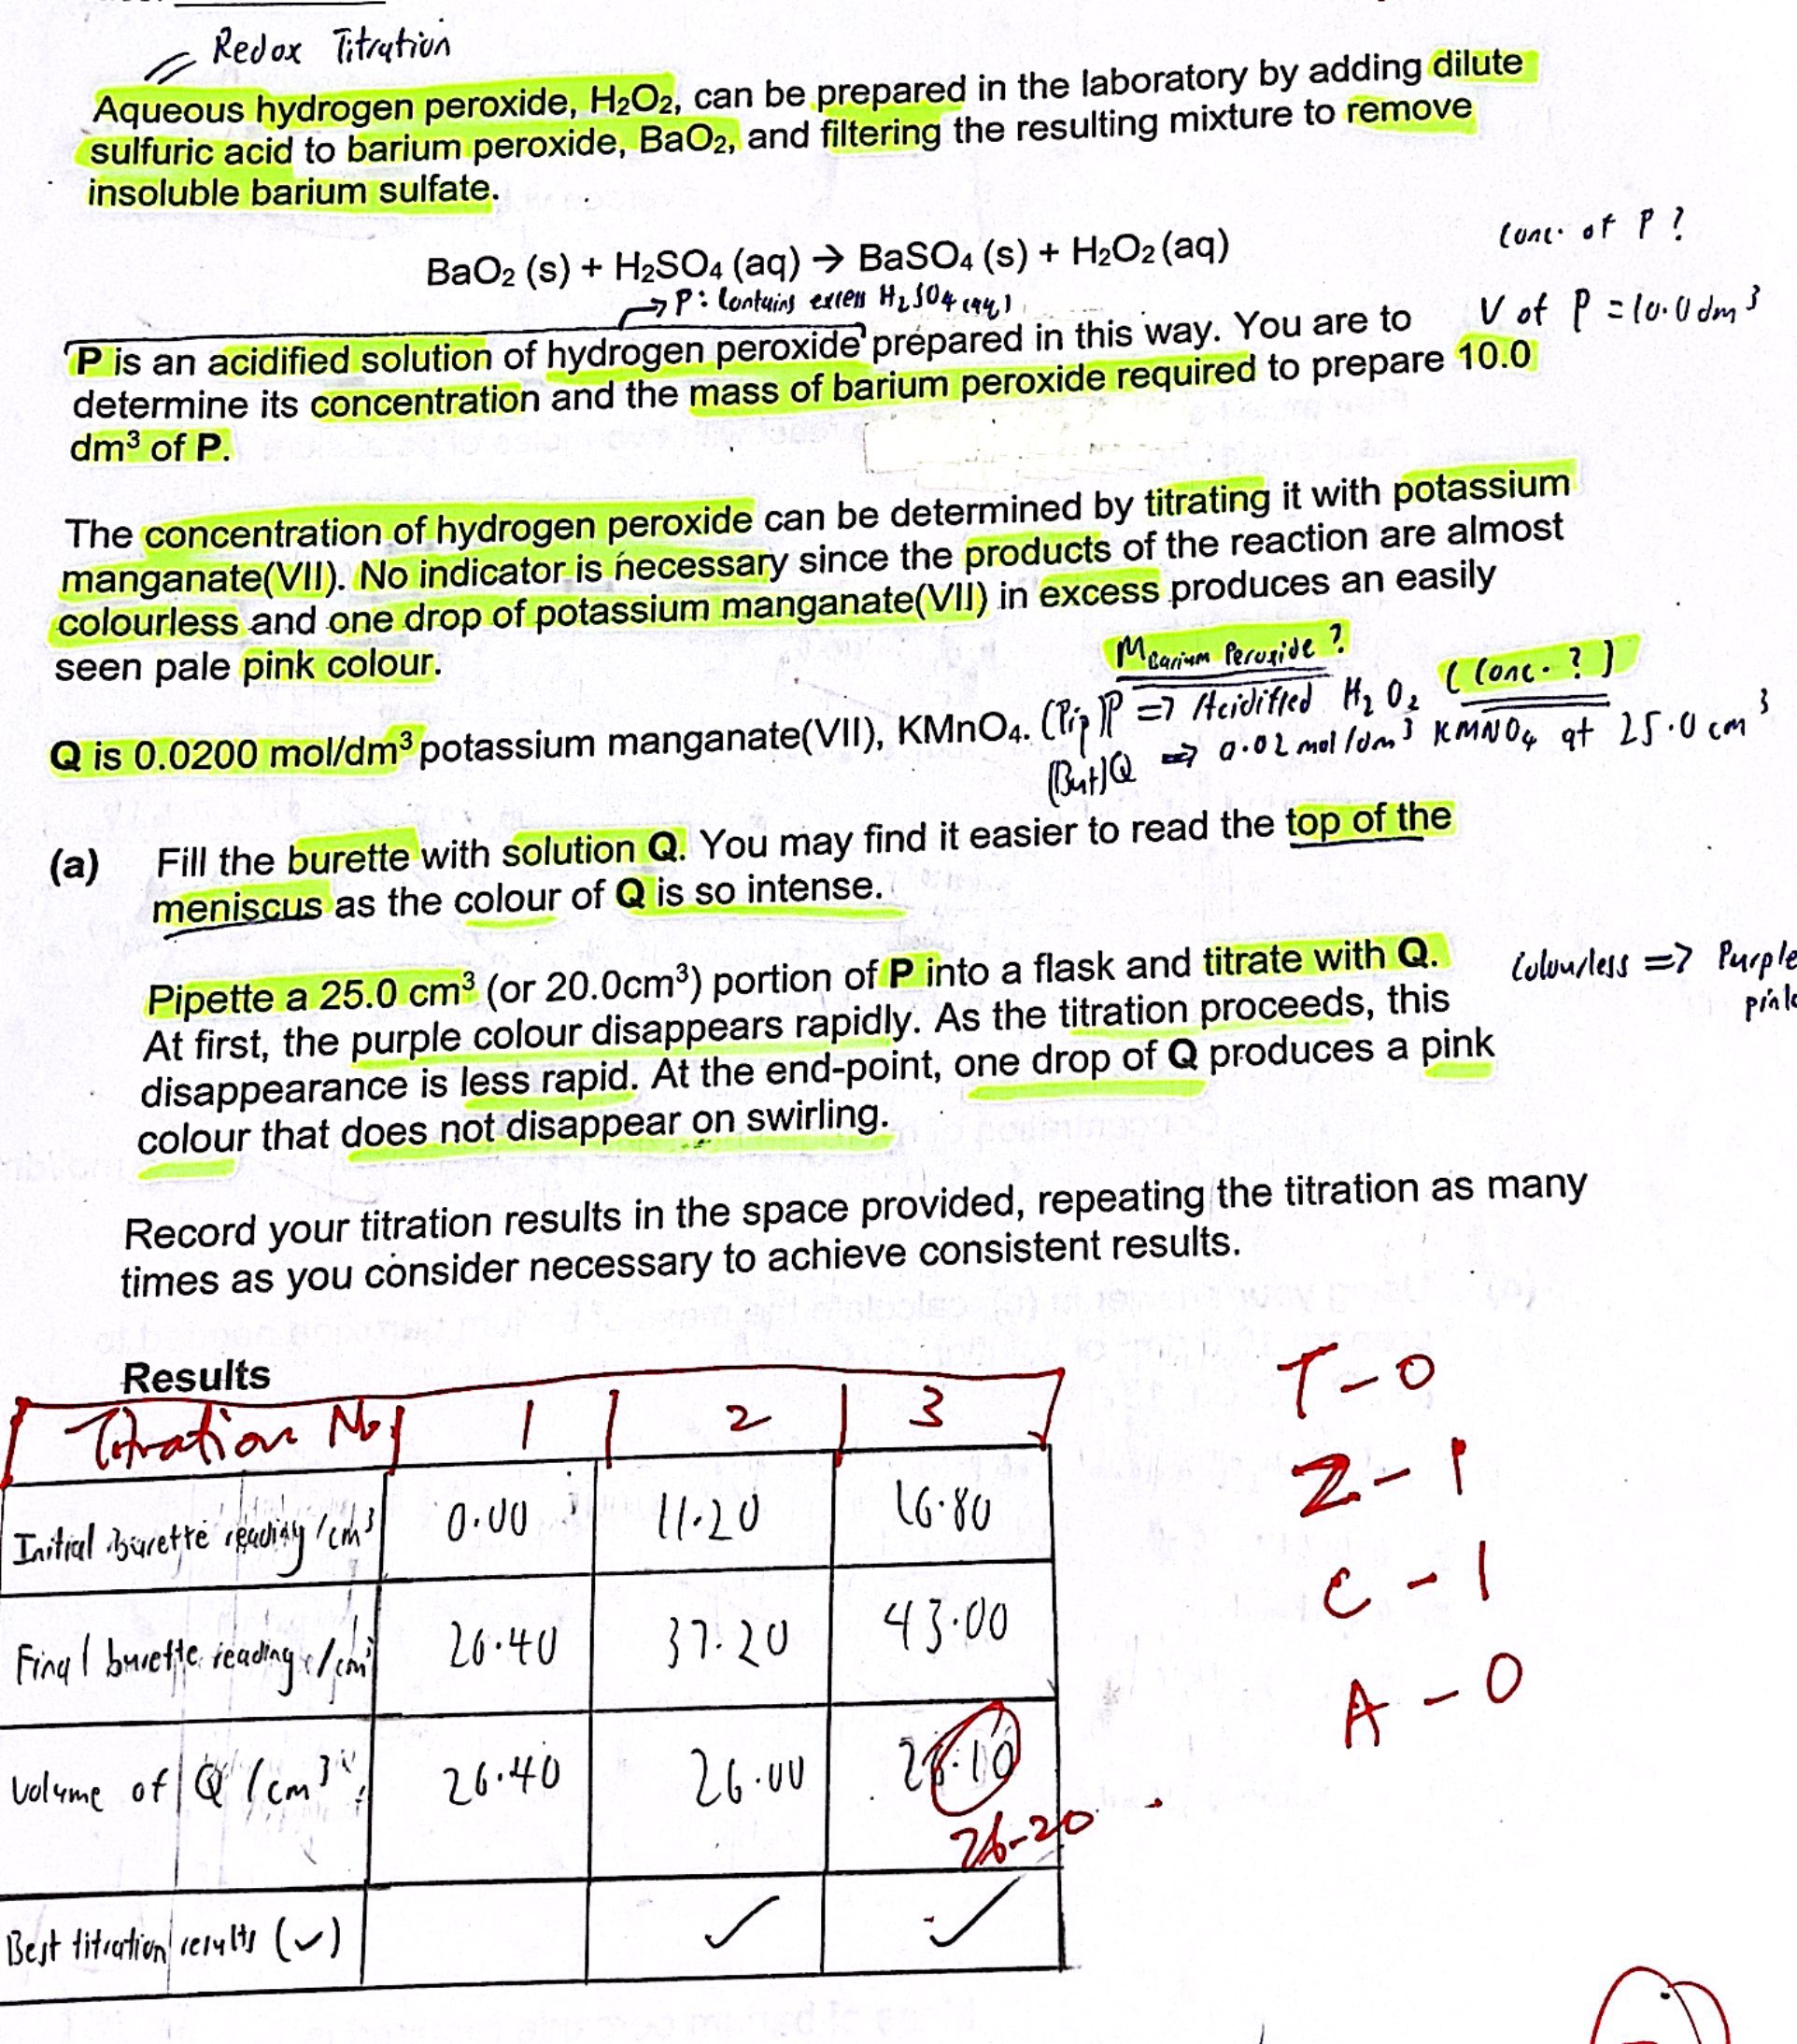 Redox Titration
Aqueous hydrogen peroxide, H₂O₂, can be prepared in the laboratory by adding dilute
sulfuric acid to barium peroxide, BaO₂, and filtering the resulting mixture to remove
insoluble barium sulfate.
conc. of P ?
BaO₂ (s) + H₂SO₄ (aq) → BaSO₄ (s) + H₂O₂ (aq)
→ P : Contains excess H₂SO₄ (aq)
V of P = 10.0 dm³
P is an acidified solution of hydrogen peroxide prepared in this way. You are to
determine its concentration and the mass of barium peroxide required to prepare 10.0
dm³ of P.
The concentration of hydrogen peroxide can be determined by titrating it with potassium
manganate(VII). No indicator is necessary since the products of the reaction are almost
colourless and one drop of potassium manganate(VII) in excess produces an easily
seen pale pink colour.
M Barium Peroxide ?
(Pip) P => Acidified H₂O₂ (Conc. ?)
Q is 0.0200 mol/dm³ potassium manganate(VII), KMnO₄.
(But) Q => 0.02 mol/dm³ KMNO₄ at 25.0 cm³
(a) Fill the burette with solution Q. You may find it easier to read the top of the
meniscus as the colour of Q is so intense.
Pipette a 25.0 cm³ (or 20.0cm³) portion of P into a flask and titrate with Q.
At first, the purple colour disappears rapidly. As the titration proceeds, this
disappearance is less rapid. At the end-point, one drop of Q produces a pink
colour that does not disappear on swirling.
Colourless => Purple
pink
Record your titration results in the space provided, repeating the titration as many
times as you consider necessary to achieve consistent results.
Results
Titration No 1 2 3
Initial burette reading /cm³ 0.00 11.20 16.80
Final burette reading /cm³ 26.40 37.20 43.00
Volume of Q /cm³ 26.40 26.00 26.10
26.20
Best titration results (✓) ✓ ✓
T - 0
Z - 1
C - 1
A - 0